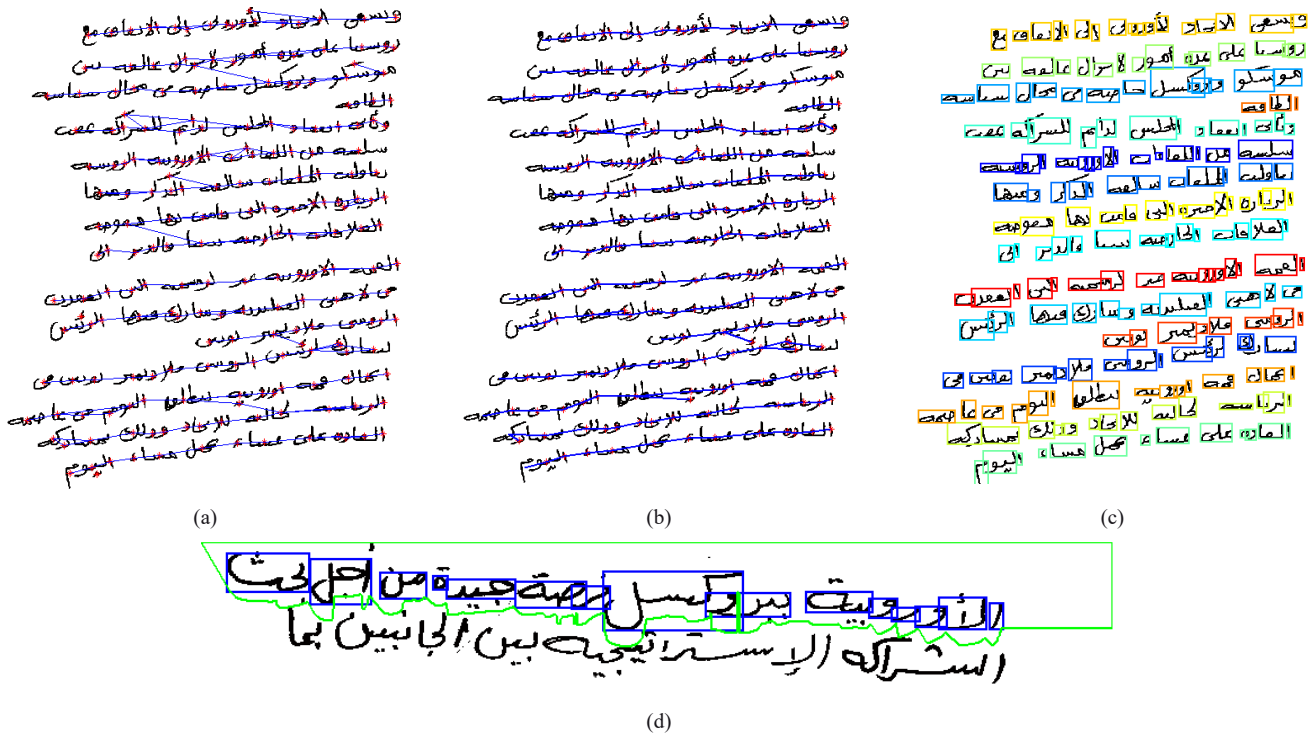 وتسعى الاتحاد لأوروبى إلى الاتفاق مع
روسيا على عدة أمور لا تزال عالقة بين
موسكو وبروكسل خاصة فى مجال سياسة
الطاقة
وتأتى انعقاد المجلس لدائم للشراكة عقب
سلسلة من اللقاءات الاوروبية الروسية
تناولت الملفات سالفة الذكر ومنها
الزيارة الاخيرة التى قامت بها مفوضة
العلاقات الخارجية والدنر الى
القمة الاوروبية غير لرسمية التى انعقدت
فى لاهتى الفنلندية وشارك فيها الرئيس
الروسى فلاديمير بوتين
يشارك لرئيس الروسى فلاديمير بوتين فى
اعمال قمة اوروبية تنطلق اليوم فى عاصمة
الرياسة لحالية للاتحاد وذلك بمشاركة
القادة على عشاء عمل مساء اليوم
(a)
وتسعى الاتحاد لأوروبى إلى الاتفاق مع
روسيا على عدة أمور لا تزال عالقة بين
موسكو وبروكسل خاصة فى مجال سياسة
الطاقة
وتأتى انعقاد المجلس لدائم للشراكة عقب
سلسلة من اللقاءات الاوروبية الروسية
تناولت الملفات سالفة الذكر ومنها
الزيارة الاخيرة التى قامت بها مفوضة
العلاقات الخارجية والدنر الى
القمة الاوروبية غير لرسمية التى انعقدت
فى لاهتى الفنلندية وشارك فيها الرئيس
الروسى فلاديمير بوتين
يشارك لرئيس الروسى فلاديمير بوتين فى
اعمال قمة اوروبية تنطلق اليوم فى عاصمة
الرياسة لحالية للاتحاد وذلك بمشاركة
القادة على عشاء عمل مساء اليوم
(b)
وتسعى الاتحاد لأوروبى الى الاتفاق مع
روسيا على عدة أمور لا تزال عالقة بين
موسكو وبروكسل خاصة فى مجال سياسة
الطاقة
وتأتى انعقاد المجلس لدائم للشراكة عقب
سلسلة من اللقاءات الاوروبية الروسية
تناولت الملفات سالفة الذكر ومنها
الزيارة الاخيرة التى قامت بها مفوضة
العلاقات الخارجية والدنر الى
القمة الاوروبية غير لرسمية التى انعقدت
فى لاهتى الفنلندية وشارك فيها الرئيس
الروسى فلاديمير بوتين
يشارك لرئيس الروسى فلاديمير بوتين فى
اعمال قمة اوروبية تنطلق اليوم فى عاصمة
الرياسة لحالية للاتحاد وذلك بمشاركة
القادة على عشاء عمل مساء اليوم
(c)
الأوروبية ببروكسل فرصة جيدة من أجل بحث
الشراكة الإستراتيجية بين الجانبين بما
(d)